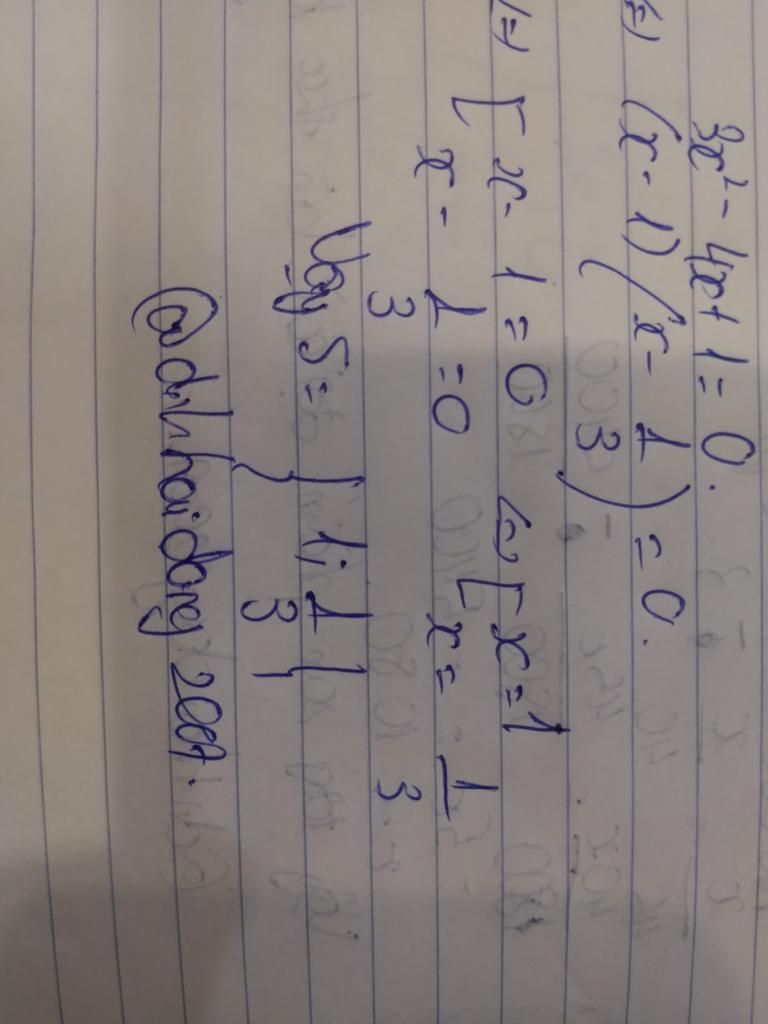 3x² - 4x + 1 = 0.
(=) (x - 1)(x - 1/3) = 0.
(=) [ x - 1 = 0 (=) [ x = 1
x - 1/3 = 0 x = 1/3
Vậy S = { 1; 1/3 }
@dinhhaidang2007.